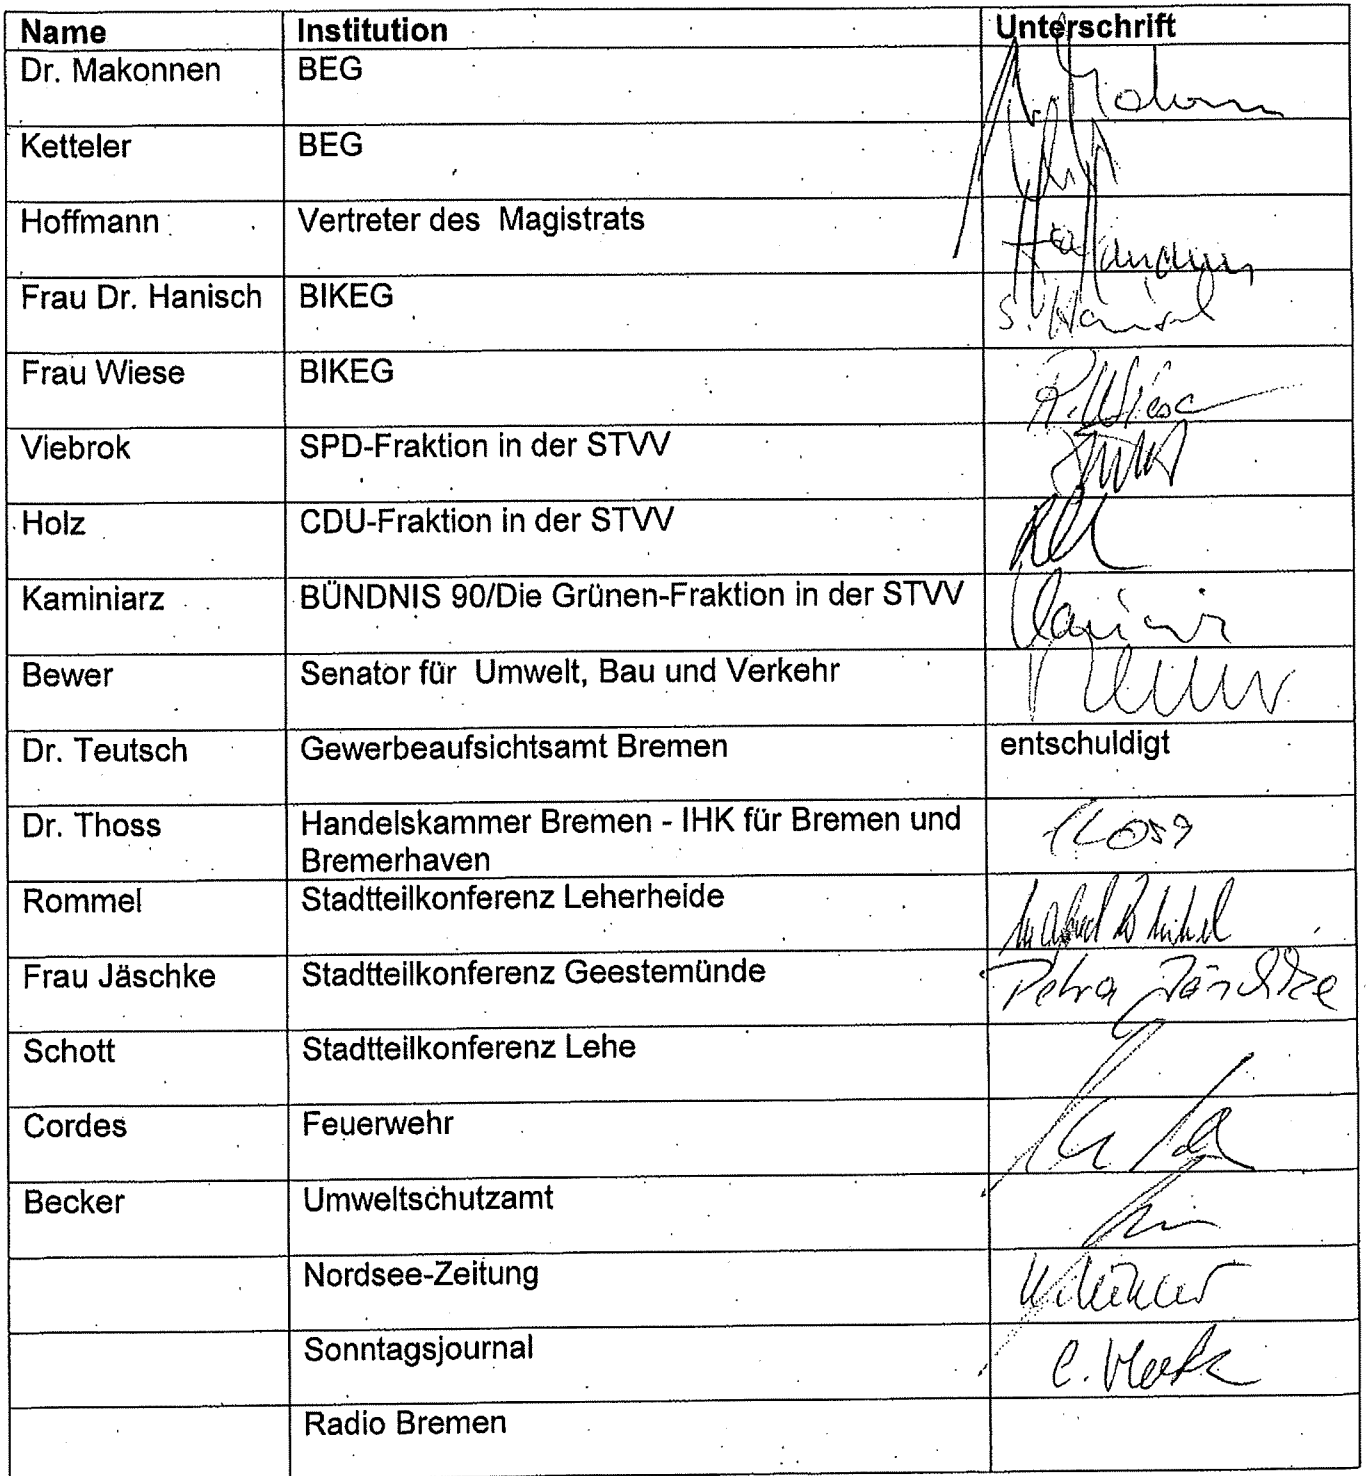 Name Institution Unterschrift
Dr. Makonnen BEG
Ketteler BEG
Hoffmann Vertreter des Magistrats
Frau Dr. Hanisch BIKEG S. Hanisch
Frau Wiese BIKEG R. Wiese
Viebrok SPD-Fraktion in der STVV
Holz CDU-Fraktion in der STVV
Kaminiarz BÜNDNIS 90/Die Grünen-Fraktion in der STVV
Bewer Senator für Umwelt, Bau und Verkehr
Dr. Teutsch Gewerbeaufsichtsamt Bremen entschuldigt
Dr. Thoss Handelskammer Bremen - IHK für Bremen und
Bremerhaven
Rommel Stadtteilkonferenz Leherheide
Frau Jäschke Stadtteilkonferenz Geestemünde Petra Jäschke
Schott Stadtteilkonferenz Lehe
Cordes Feuerwehr
Becker Umweltschutzamt
Nordsee-Zeitung
Sonntagsjournal
Radio Bremen